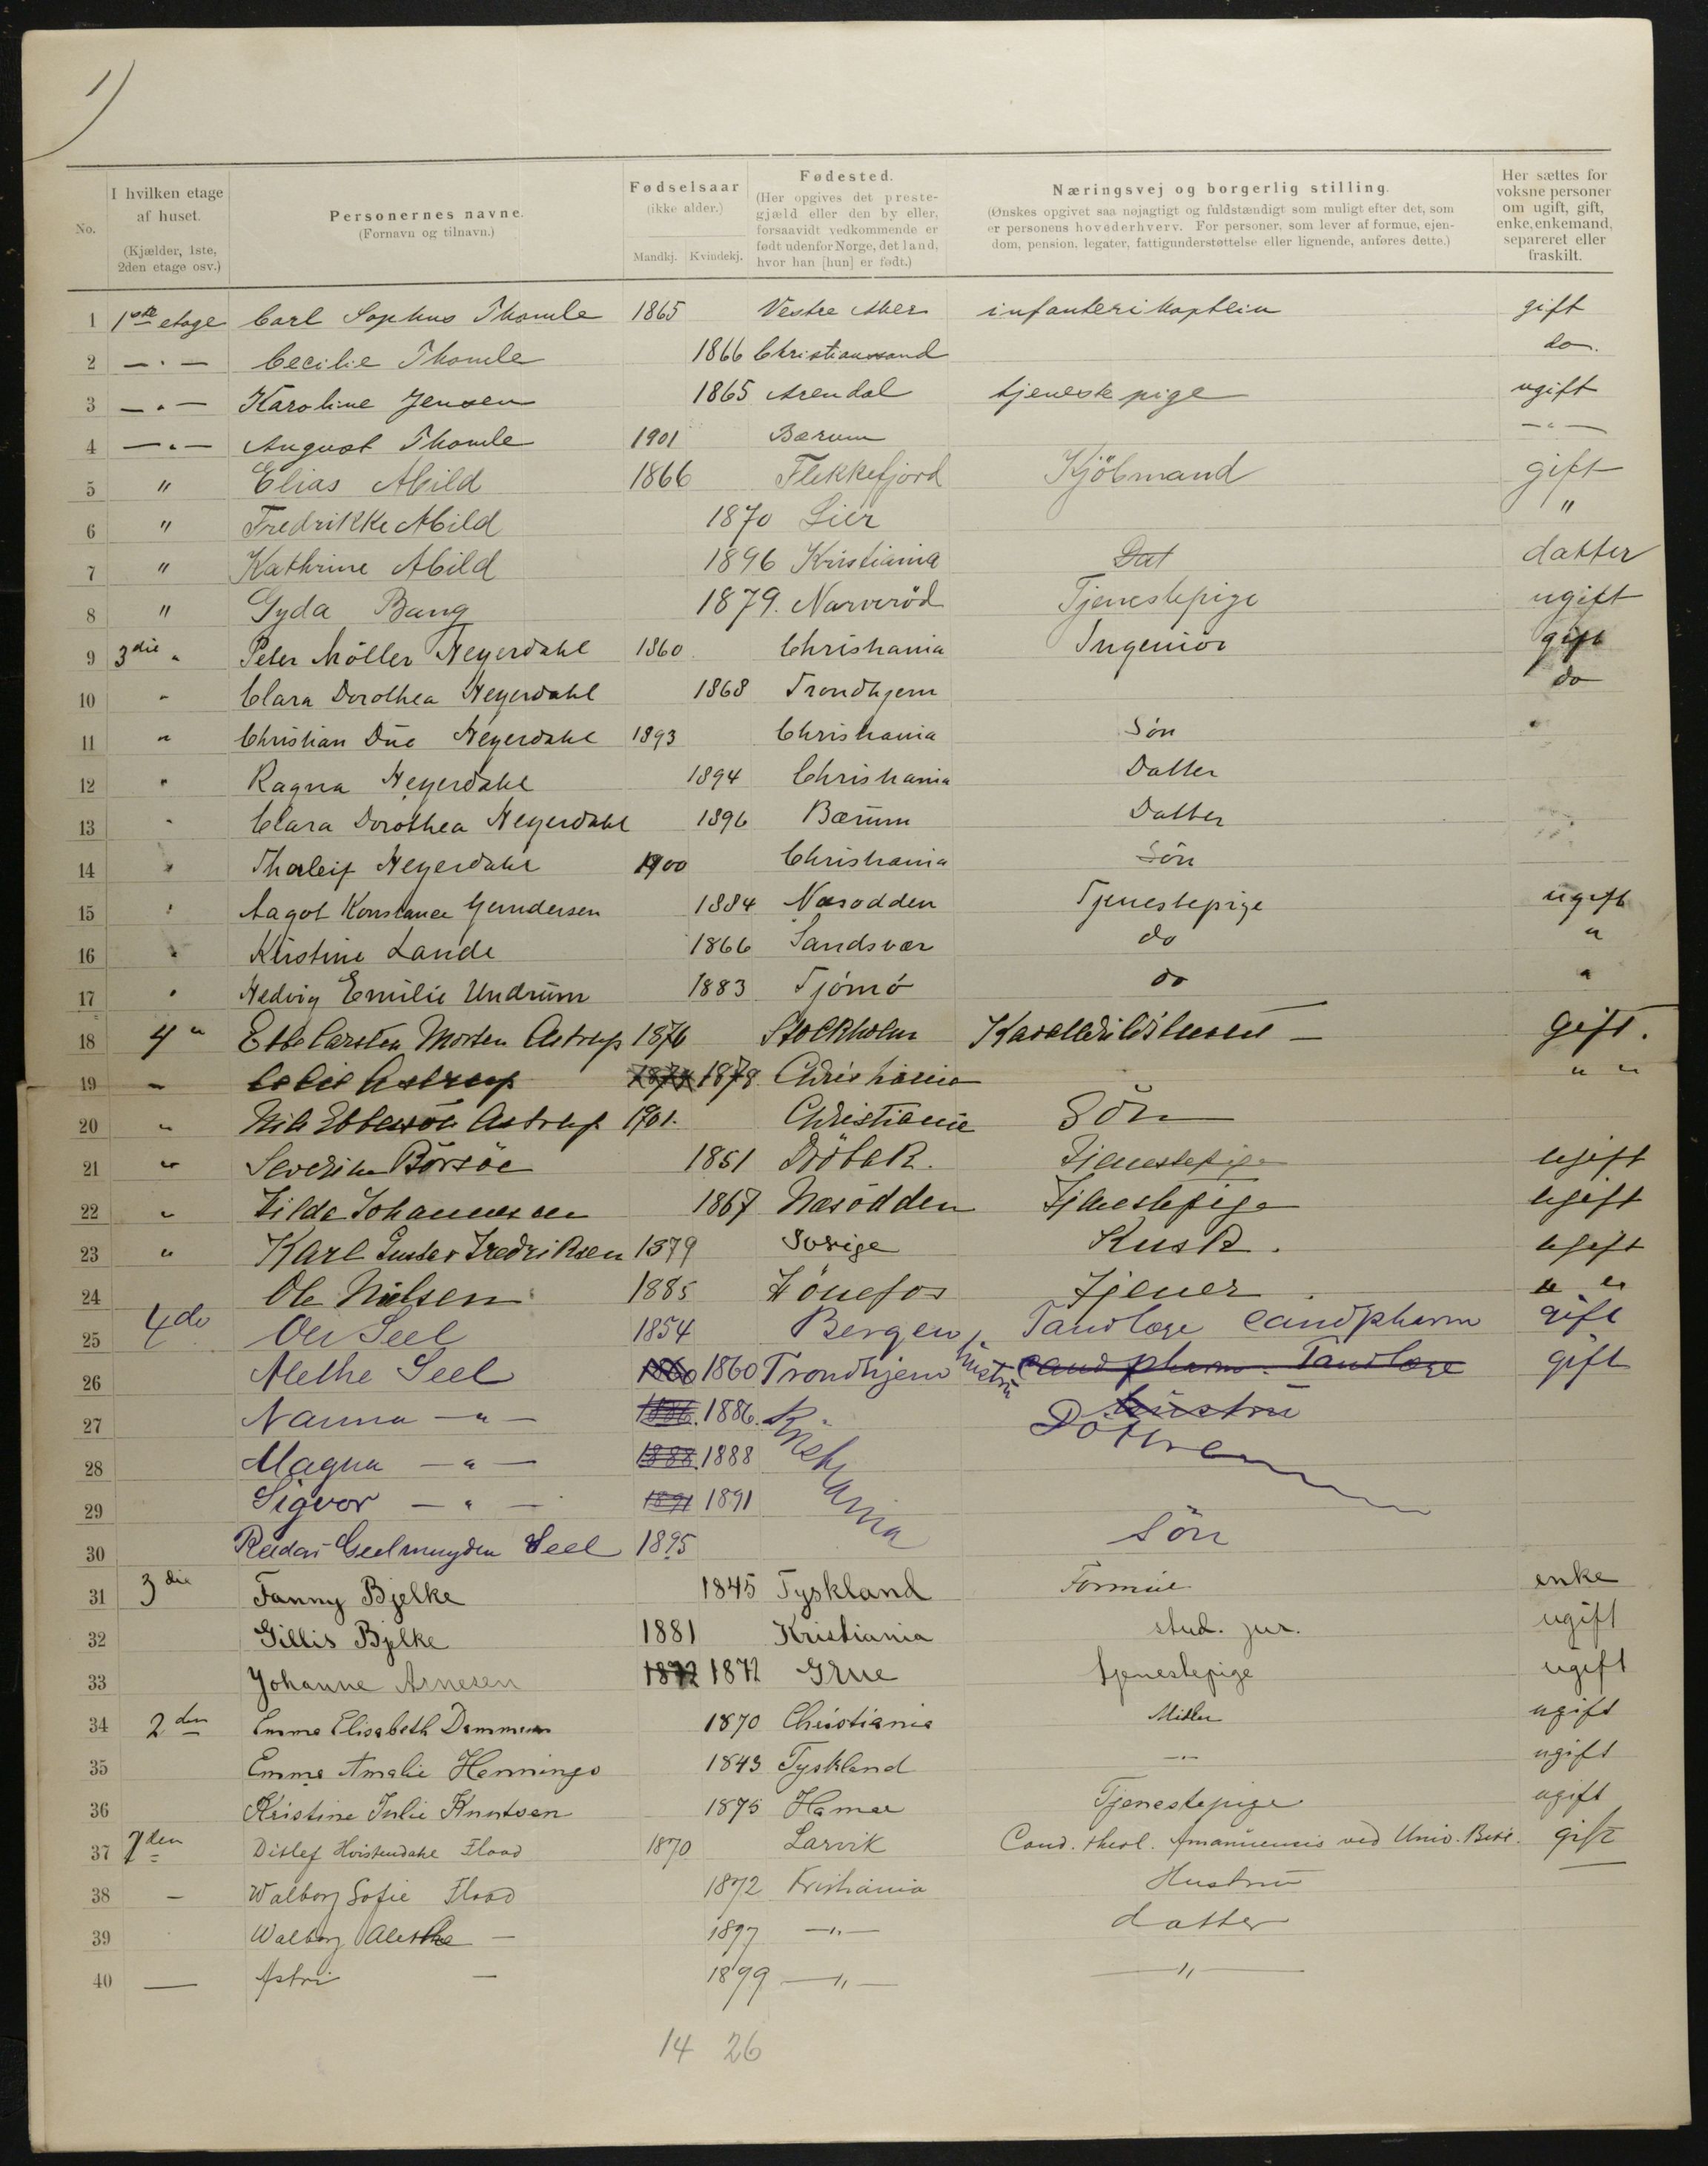 1)
No. I hvilken etage af huset. (Kjælder, 1ste, 2den etage osv.) Personernes navne. (Fornavn og tilnavn.) Fødselsaar (ikke alder.) Mandkj. Kvindekj. Fødested. (Her opgives det prestegjæld eller den by eller, forsaavidt vedkommende er født udenfor Norge, det land, hvor han [hun] er født.) Næringsvej og borgerlig stilling. (Ønskes opgivet saa nøjagtigt og fuldstændigt som muligt efter det, som er personens hovederhverv. For personer, som lever af formue, ejendom, pension, legater, fattigunderstøttelse eller lignende, anføres dette.) Her sættes for voksne personer om ugift, gift, enke, enkemand, separeret eller fraskilt.
1 1ste etage Carl Sophus Thomle 1865 Vestre Aker infanterikaptein gift
2 — " — Cecilie Thomle 1866 Christianssand do.
3 — " — Karoline Jensen 1865 Arendal tjenestepige ugift
4 — " — August Thomle 1901 Bærum — " —
5 " Elias Abild 1866 Flekkefjord Kjöbmand gift
6 " Fredrikke Abild 1870 Lier "
7 " Kathrine Abild 1896 Kristiania Dat datter
8 " Gyda Bang 1879. Narveröd Tjenestepige ugift
9 3die " Peter Möller Heyerdahl 1860 Christiania Ingeniör gift
10 " Clara Dorothea Heyerdahl 1868 Trondhjem do
11 " Christian Düe Heyerdahl 1893 Christiania Sön
12 " Ragna Heyerdahl 1894 Christiania Datter
13 " Clara Dorothea Heyerdahl 1896 Bærum Datter
14 " Thorleif Heyerdahl 1900 Christiania Sön
15 " Aagot Konstance Gundersen 1884 Næsodden Tjenestepige ugift
16 " Kirstine Lande 1866 Sandsvær do "
17 " Hedvig Emilie Undrum 1883 Tjömö do "
18 4 " Ebbe Carsten Morten Astrup 1876 Stockholm gift.
19 " Astrup 1878 Christiania " "
20 " Nils Ebbessön Astrup 1901. Christiania Sön
21 " Severine Börsöe 1851 Dröbak. Tjenestepige ugift
22 " Hilda Johannesen 1867 Næsodden Tjenestepige ugift
23 " Karl Gustav Fredriksen 1879 Sverige Kusk. ugift
24 Ole Nilsen 1885 Hönefos Tjener " "
25 4do Ole Seel 1854 Bergen Tandlæge cand pharm gift
26 Alethe Seel 1860 1860 Trondhjem hustru cand pharm. Tandlæge gift
27 Nanna — " — 1886. 1886. Kristiania hustru Döttre
28 Magna — " — 1888. 1888
29 Sigvor — " — 1891 1891
30 Reidar Geelmuyden Seel 1895 Sön
31 3die Fanny Bjelke 1845 Tyskland Formue enke
32 Gillis Bjelke 1881 Kristiania stud. jur. ugift
33 Johanne Arnesen 1872 1872 Grue tjenestepige ugift
34 2den Emma Elisabeth Dammen 1870 Christiania Midler ugift
35 Emma Amalie Hennings 1843 Tyskland — " — ugift
36 Kristine Julie Knutsen 1875 Hamar Tjenestepige ugift
37 2den Ditlef Hvistendahl Flood 1870 Larvik Cand. theol. Amanuensis ved Univ. Bibl. gift
38 — Walborg Sofie Flood 1872 Kristiania Hustru —
39 Walborg Alethe — 1897 — " — datter
40 — Astri — 1899 — " — — " —
14 26